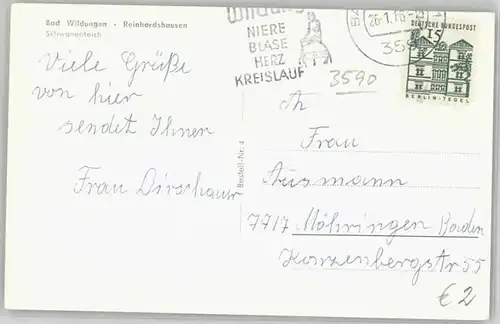 Bad Wildungen - Reinhardshausen
Schwanenteich
Viele Grüße
von hier
sendet Ihnen
Frau Dirschauer
Bestell-Nr. 4
NIERE
BLASE
HERZ
KREISLAUF
26.-1.66
DEUTSCHE BUNDESPOST
15
BERLIN-TEGEL
3590
An
Frau
Ausmann
7717 Möhringen Baden
Konzenbergstr 55
€ 2